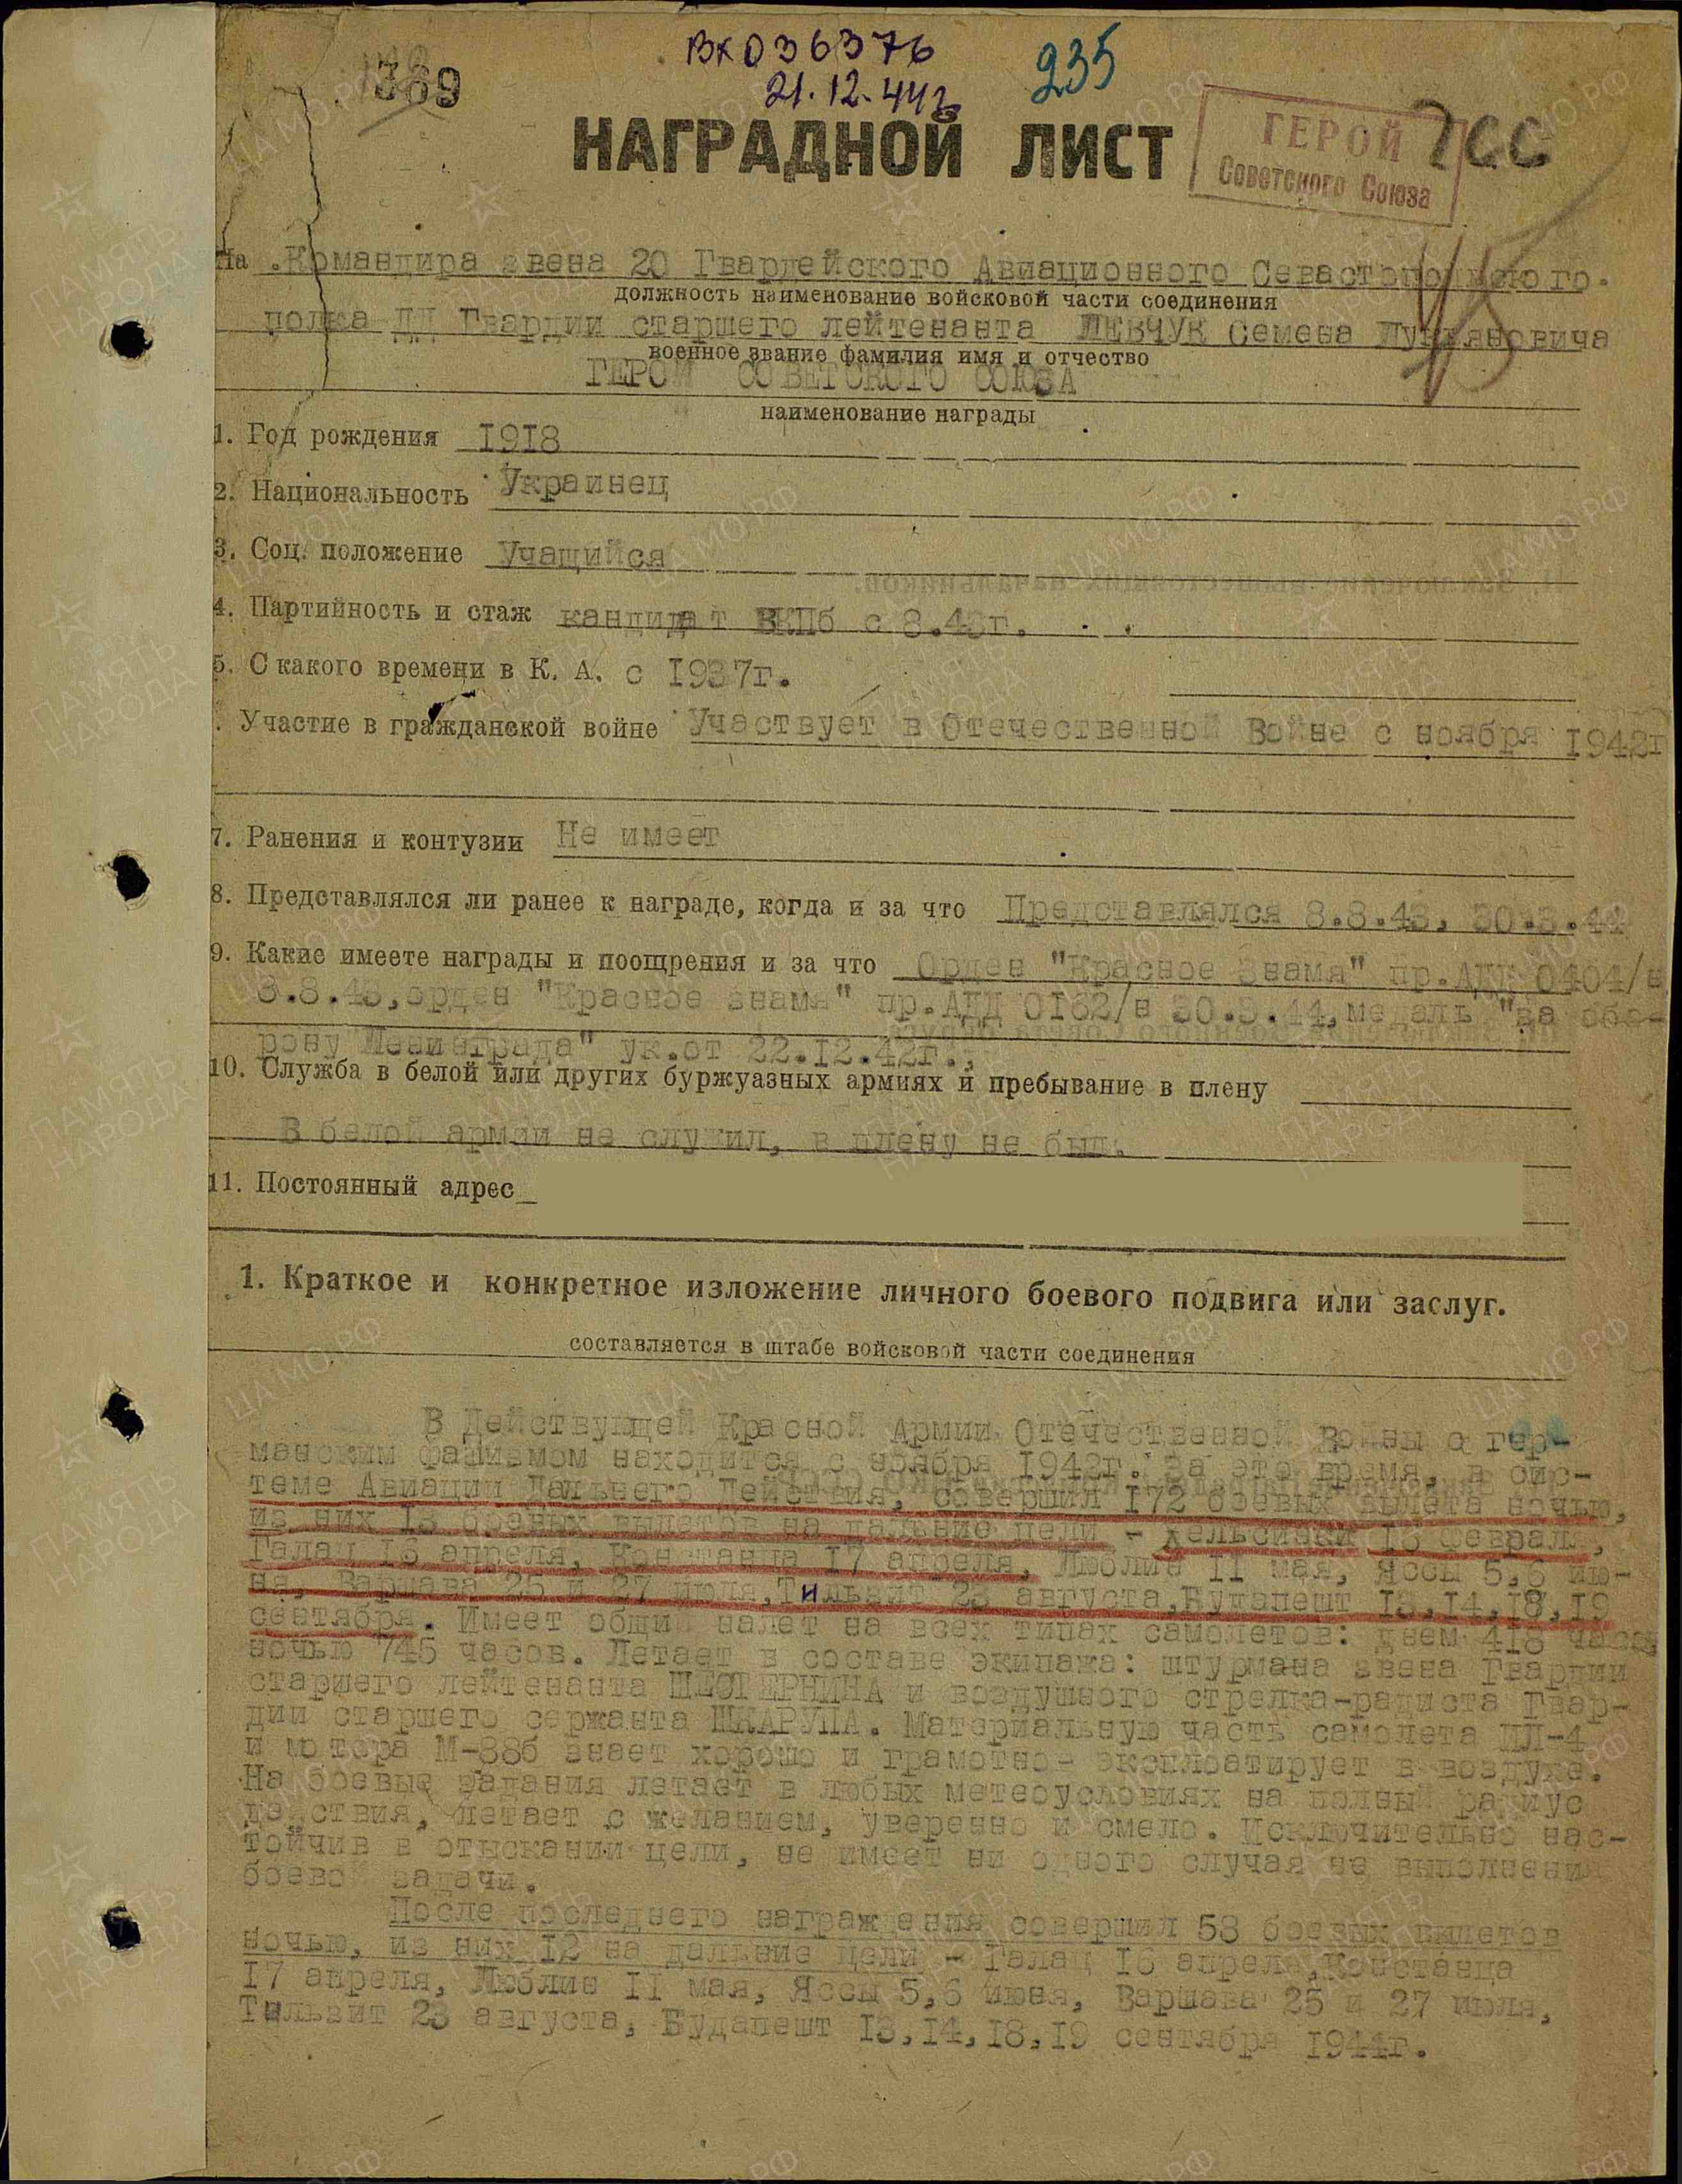 369
вх036376
21.12.44г
235
НАГРАДНОЙ ЛИСТ
ГЕРОЙ
Советского Союза
ГСС
На Командира звена 20 Гвардейского Авиационного Севастопольского
должность наименование войсковой части соединения
полка ДД Гвардии старшего лейтенанта ЛЕВЧУК Семена Лукьяновича
военное звание фамилия имя и отчество
ГЕРОЙ СОВЕТСКОГО СОЮЗА
наименование награды
1. Год рождения 1918
2. Национальность Украинец
3. Соц. положение Учащийся
4. Партийность и стаж кандидат ВКПб с 8.43г.
5. С какого времени в К. А. с 1937г.
. Участие в гражданской войне Участвует в Отечественной Войне с ноября 1942г
7. Ранения и контузии Не имеет
8. Представлялся ли ранее к награде, когда и за что Представлялся 8.8.43, 30.3.44
9. Какие имеете награды и поощрения и за что Орден "Красное Знамя" пр.АДД 0404/н
8.8.43, орден "Красное знамя" пр.АДД 0132/н 30.3.44, медаль "за обо-
рону Ленинграда" ук.от 22.12.42г.,
10. Служба в белой или других буржуазных армиях и пребывание в плену
В белой армии не служил, в плену не был.
11. Постоянный адрес
1. Краткое и конкретное изложение личного боевого подвига или заслуг.
составляется в штабе войсковой части соединения
В Действующей Красной Армии Отечественной Войны с гер-
манским фашизмом находится с ноября 1942г. За это время, в сис-
теме Авиации Дальнего Действия, совершил 172 боевых вылета ночью,
из них 13 боевых вылетов на дальние цели - Хельсинки 16 февраля,
Галац 16 апреля, Констанца 17 апреля, Люблин 11 мая, Яссы 5,6 ию-
ня, Варшава 25 и 27 июля, Тильзит 23 августа, Будапешт 13,14,18,19
сентября. Имеет общий налет на всех типах самолетов: днем 418 часов
ночью 745 часов. Летает в составе экипажа: штурмана звена Гвардии
старшего лейтенанта ШЕСТЕРНИНА и воздушного стрелка-радиста Гвар-
дии старшего сержанта ШКАРУПА. Материальную часть самолета ИЛ-4
и мотора М-88б знает хорошо и грамотно- эксплоатирует в воздухе.
На боевые задания летает в любых метеоусловиях на полный радиус
действия, летает с желанием, уверенно и смело. Исключительно нас-
тойчив в отыскании цели, не имеет ни одного случая не выполнения
боевой задачи.
После последнего награждения совершил 58 боевых вылетов
ночью, из них 12 на дальние цели - Галац 16 апреля, Констанца
17 апреля, Люблин 11 мая, Яссы 5,6 июня, Варшава 25 и 27 июля,
Тильзит 23 августа, Будапешт 13,14,18,19 сентября 1944г.